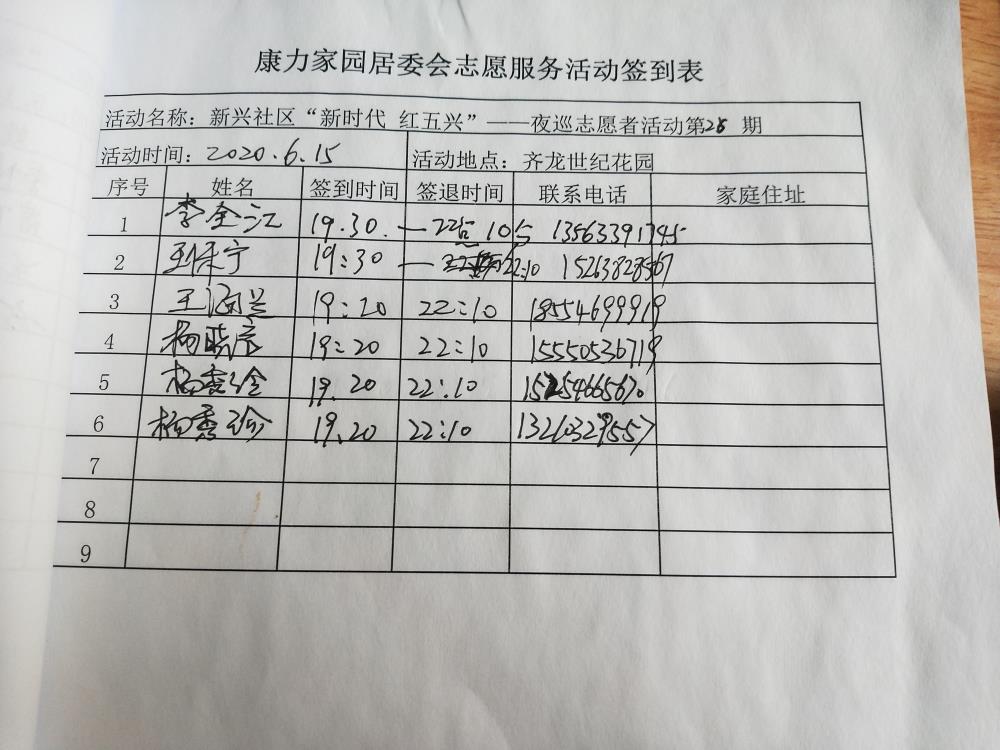 康力家园居委会志愿服务活动签到表
活动名称：新兴社区“新时代 红五兴”——夜巡志愿者活动第28 期
活动时间：2020.6.15 活动地点：齐龙世纪花园
序号 姓名 签到时间 签退时间 联系电话 家庭住址
1 李全江 19.30.— 22点10分 13563391745
2 宁 19:30 — 22:10 15263828567
3 王兰 19:20 22:10 18554699919
4 杨 19:20 22:10 15550536719
5 杨 19.20 22:10
6 杨秀珍 19.20 22:10
7
8
9